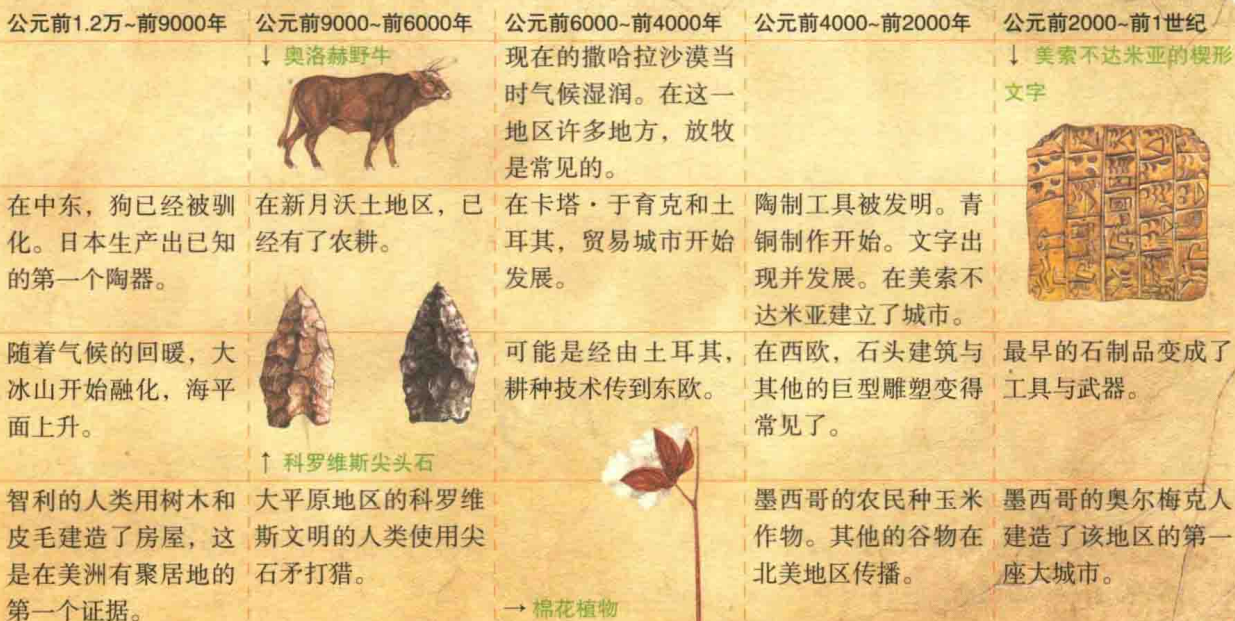 公元前1.2万~前9000年
公元前9000~前6000年
公元前6000~前4000年
公元前4000~前2000年
公元前2000~前1世纪
↓ 奥洛赫野牛
现在的撒哈拉沙漠当
时气候湿润。在这一
地区许多地方，放牧
是常见的。
↓ 美索不达米亚的楔形
文字
在中东，狗已经被驯
化。日本生产出已知
的第一个陶器。
在新月沃土地区，已
经有了农耕。
在卡塔·于育克和土
耳其，贸易城市开始
发展。
陶制工具被发明。青
铜制作开始。文字出
现并发展。在美索不
达米亚建立了城市。
随着气候的回暖，大
冰山开始融化，海平
面上升。
↑ 科罗维斯尖头石
可能是经由土耳其，
耕种技术传到东欧。
在西欧，石头建筑与
其他的巨型雕塑变得
常见了。
最早的石制品变成了
工具与武器。
智利的人类用树木和
皮毛建造了房屋，这
是在美洲有聚居地的
第一个证据。
大平原地区的科罗维
斯文明的人类使用尖
石矛打猎。
→ 棉花植物
墨西哥的农民种玉米
作物。其他的谷物在
北美地区传播。
墨西哥的奥尔梅克人
建造了该地区的第一
座大城市。